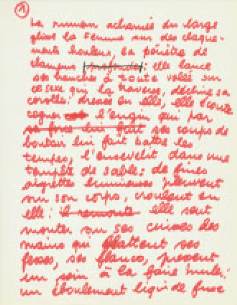 1
La rumeur acharnée du large
glisse la femme sur des claque-
ments houleux, la pénètre de
clameurs : elle lance
ses hanches à toute volée sur
ce sexe qui la traverse, déchire sa
corolle : dressé en elle, elle écoute
cogner l'engin qui par
ses coups de
boutoir lui fait battre les
tempes, l'ensevelit dans une
tempête de sable : de fines
aigrettes lumineuses pleuvent
sur son corps, croulent en
elle : elle sent
monter sur ses cuisses des
mains qui battent ses
fesses, ses flancs, pressent
un sein à la faire hurler :
un éboulement liquide fuse